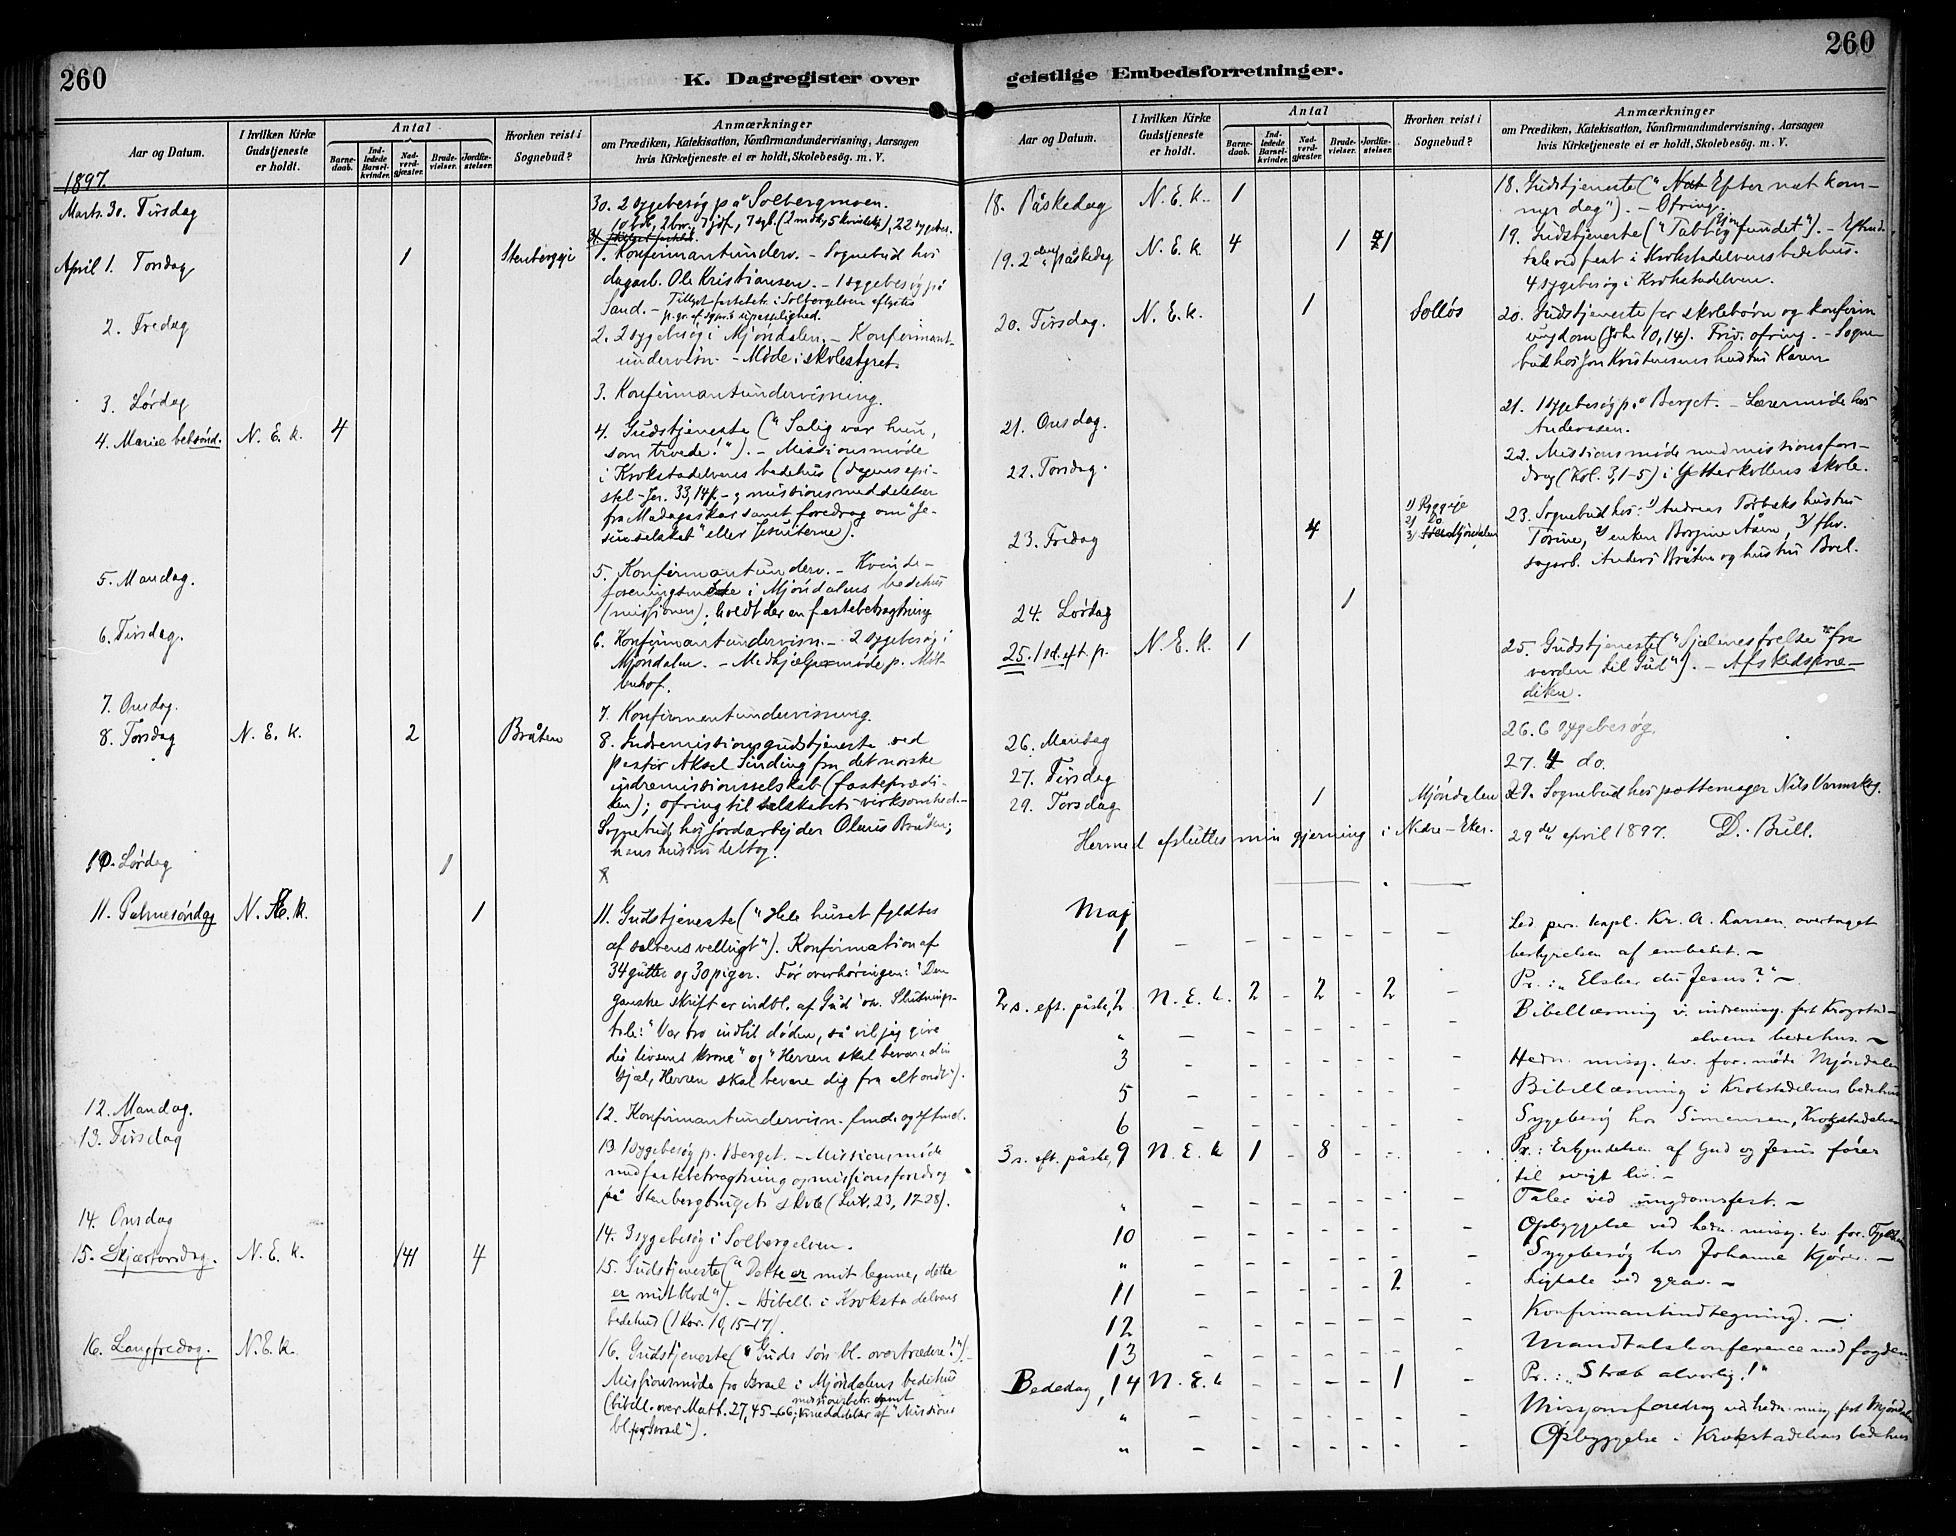 260
K. Dagregister over
Aar og Datum.
I hvilken Kirke Gudstjeneste er holdt.
Antal
Barnedaab.
Indledede Barselkvinder.
Nadverdgjæster.
Brudevielser.
Jordfæstelser.
Hvorhen reist i Sognebud?
Anmærkninger
om Prædiken, Katekisation, Konfirmandundervisning, Aarsagen
hvis Kirketjeneste ei er holdt, Skolebesög. m. V.
1897.
Marts. 30. Tirsdag
30. 2 sygebesøg på Solbergmoen.
April 1. Torsdag 1 Stenbergeje
1. Konfirmantunderv. – Sognebud hos
dagarb. Ole Kristiansen. – 1 sygebesøg på
Sand.
2. Fredag
2. 2 sygebesøg i Mjöndalen. – Konfirmant-
undervisn. – Møde i skolestyret.
3. Lørdag
3. Konfirmantundervisning.
4. Mariæ bebsønd. N. E. k. 4
4. Gudstjeneste ("Salig var hun,
som troede!"). – Missionsmøde
i Krokstadelvens bedehus (dagens epi-
stel – Jer. 33, 14 f. – og missionsmeddelelser
fra Madagaskar samt foredrag om "Je-
suselskab" eller Jesuiterne).
5. Mandag.
5. Konfirmantunderv. – Kvinde-
foreningsmøde i Mjöndalens bedehus
(missionen); holdt der en fastebetragtning
6. Tirsdag.
6. Konfirmantundervisn. – 2 sygebesøg i
Mjöndalen. –
7. Onsdag.
7. Konfirmantundervisning.
8. Torsdag N. E. k. 2 Bråten
8. Indremissionsgudstjeneste ved
pastor Aksel Sinding fra det norske
indremissionsselskab (fasteprædi-
ken); ofring til selskabets virksomhed. –
Sognebud hos jordarbejder Olaus Bråten;
hans hustru deltog.
10. Lørdag 1
11. Palmesøndag N. E. k. 1
11. Gudstjeneste ("Hele huset fyldtes
af salvens vellugt"). Konfirmation af
34 gutter og 30 piger. Før overhøringen: "Den
ganske skrift er indbl. af Gud" osv. Slutnings-
tale: "Vær tro indtil døden, så vil jeg give
dig livsens krone" og "Herren skal bevare din
sjæl, Herren skal bevare dig fra alt ondt").
12. Mandag.
12. Konfirmantundervisn.
13. Tirsdag
13. 1 sygebesøg p. Berget. – Missionsmøde
med fastebetragtning og missionsforedrag
på Stenbergbrugets skole (Luk. 23, 17-28).
14. Onsdag
14. 3 sygebesøg i Solbergelven.
15. Skjærtorsdag. N. E. k. 141 4
15. Gudstjeneste ("Dette er mit legeme, dette
er mit blod"). – Bibell. i Krokstadelvens
bedehus (1 Kor. 10, 15–17).
16. Langfredag. N. E. k.
16. Gudstjeneste ("Guds søn bl. overtrædere!").
Missionsmøde for Israel i Mjöndalens bedehus
(bibell. over Matt. 27, 45–66; missionsbetr. samt
meddelelser af "Missions
bl. for Israel").
260
geistlige Embedsforretninger.
Aar og Datum.
I hvilken Kirke Gudstjeneste er holdt.
Antal
Barnedaab.
Indledede Barselkvinder.
Nadverdgjæster.
Brudevielser.
Jordfæstelser.
Hvorhen reist i Sognebud?
Anmærkninger
om Prædiken, Katekisation, Konfirmandundervisning, Aarsagen
hvis Kirketjeneste ei er holdt, Skolebesög. m. V.
18. Påskedag N. E. k. 1
18. Gudstjeneste ("Nat Efter nat kom-
mer dag"). – Ofring.
19. 2den påskedag N. E. k. 4 1 1
19. Gudstjeneste ("Tabt igjenfundet"). –
tale ved fest i Krokstadelvens bedehus.
4 sygebesøg i Krokstadelven.
20. Tirsdag. N. E. k. 1 Solløs
20. Gudstjeneste for skolebørn og konfirm.
ungdom (Joh. 10, 14). Friv. ofring. – Sogne-
bud hos Jon Kristensens hustru Karen
21. Onsdag.
21. 1 sygebesøg på Berget. – Lærermøde hos
Anderssen.
22. Torsdag.
22. Missionsmøde med missionsfore-
drag (Kol. 3, 1–5) i Ytterkollens skole.
23. Fredag 4
1) Ryggeje
2) Do
3) Mjöndalen
23. Sognebud hos: 1) Andreas Torbeks hustru
Torine, 2) enken Borgine Åsen, 3) fhv.
dagarb. Anders Bråten og hustru Brel.
24. Lørdag 1
25. 1 sd. eft. p. N. E. k. 1
25. Gudstjeneste ("Sjælenes frelse fra
verden til Gud"). – Afskedspræ-
diken.
26. Mandag
26. 6 sygebesøg.
27. Tirsdag
27. 4 do.
29. Torsdag 1 Mjöndalen
29. Sognebud hos pottemager Nils Varmskog.
Hermed afsluttes min gjerning i Nedre-Eker. 29de april 1897. D. Bull.
Maj
1 – – – – – – –
Led. pers. kapl. Kr. A. Larsen overtaget
bestyrelsen af embedet. –
2 s. eft. påske, 2 N. E. k. 2 – 2 – 2 –
Pr.: "Elsker du Jesus?" –
" – – – – – – –
Bibellæsning v. indremiss. fest Krogstad-
elvens bedehus. –
3 – – – – – – –
Hedn. missj. kv. for. møde Mjöndalen
5 – – – – – – –
Bibellæsning i Krokstadelvens bedehus
6 – – – – – – –
Sygebesøg hos Simensen, Krokstadelven
3 s. eft. påske, 9 N. E. k 1 – 8 – – –
Pr.: Erkjendelsen af Gud og Jesus fører
til evigt liv. –
" – – – – – – –
Taler ved ungdomsfest. –
10 – – – – – – –
Opbyggelse ved hedn. missj. kv. for.
" – – – – – – –
Sygebesøg hos Johanne Kjörs. –
11 – – – – – 2 –
Ligtale ved grav. –
12 – – – – – – –
Konfirmantindtegning. –
13 – – – – – – –
Mandtalskonference med fogden.
Bededag, 14 N. E. k – – – – 1 –
Pr.: "Stræb alvorlig!"
" – – – – – – –
Missjonsforedrag ved hedn. missj. fest Mjöndalen
" – – – – – – –
Opbyggelse i Krokstadelvens bedehus